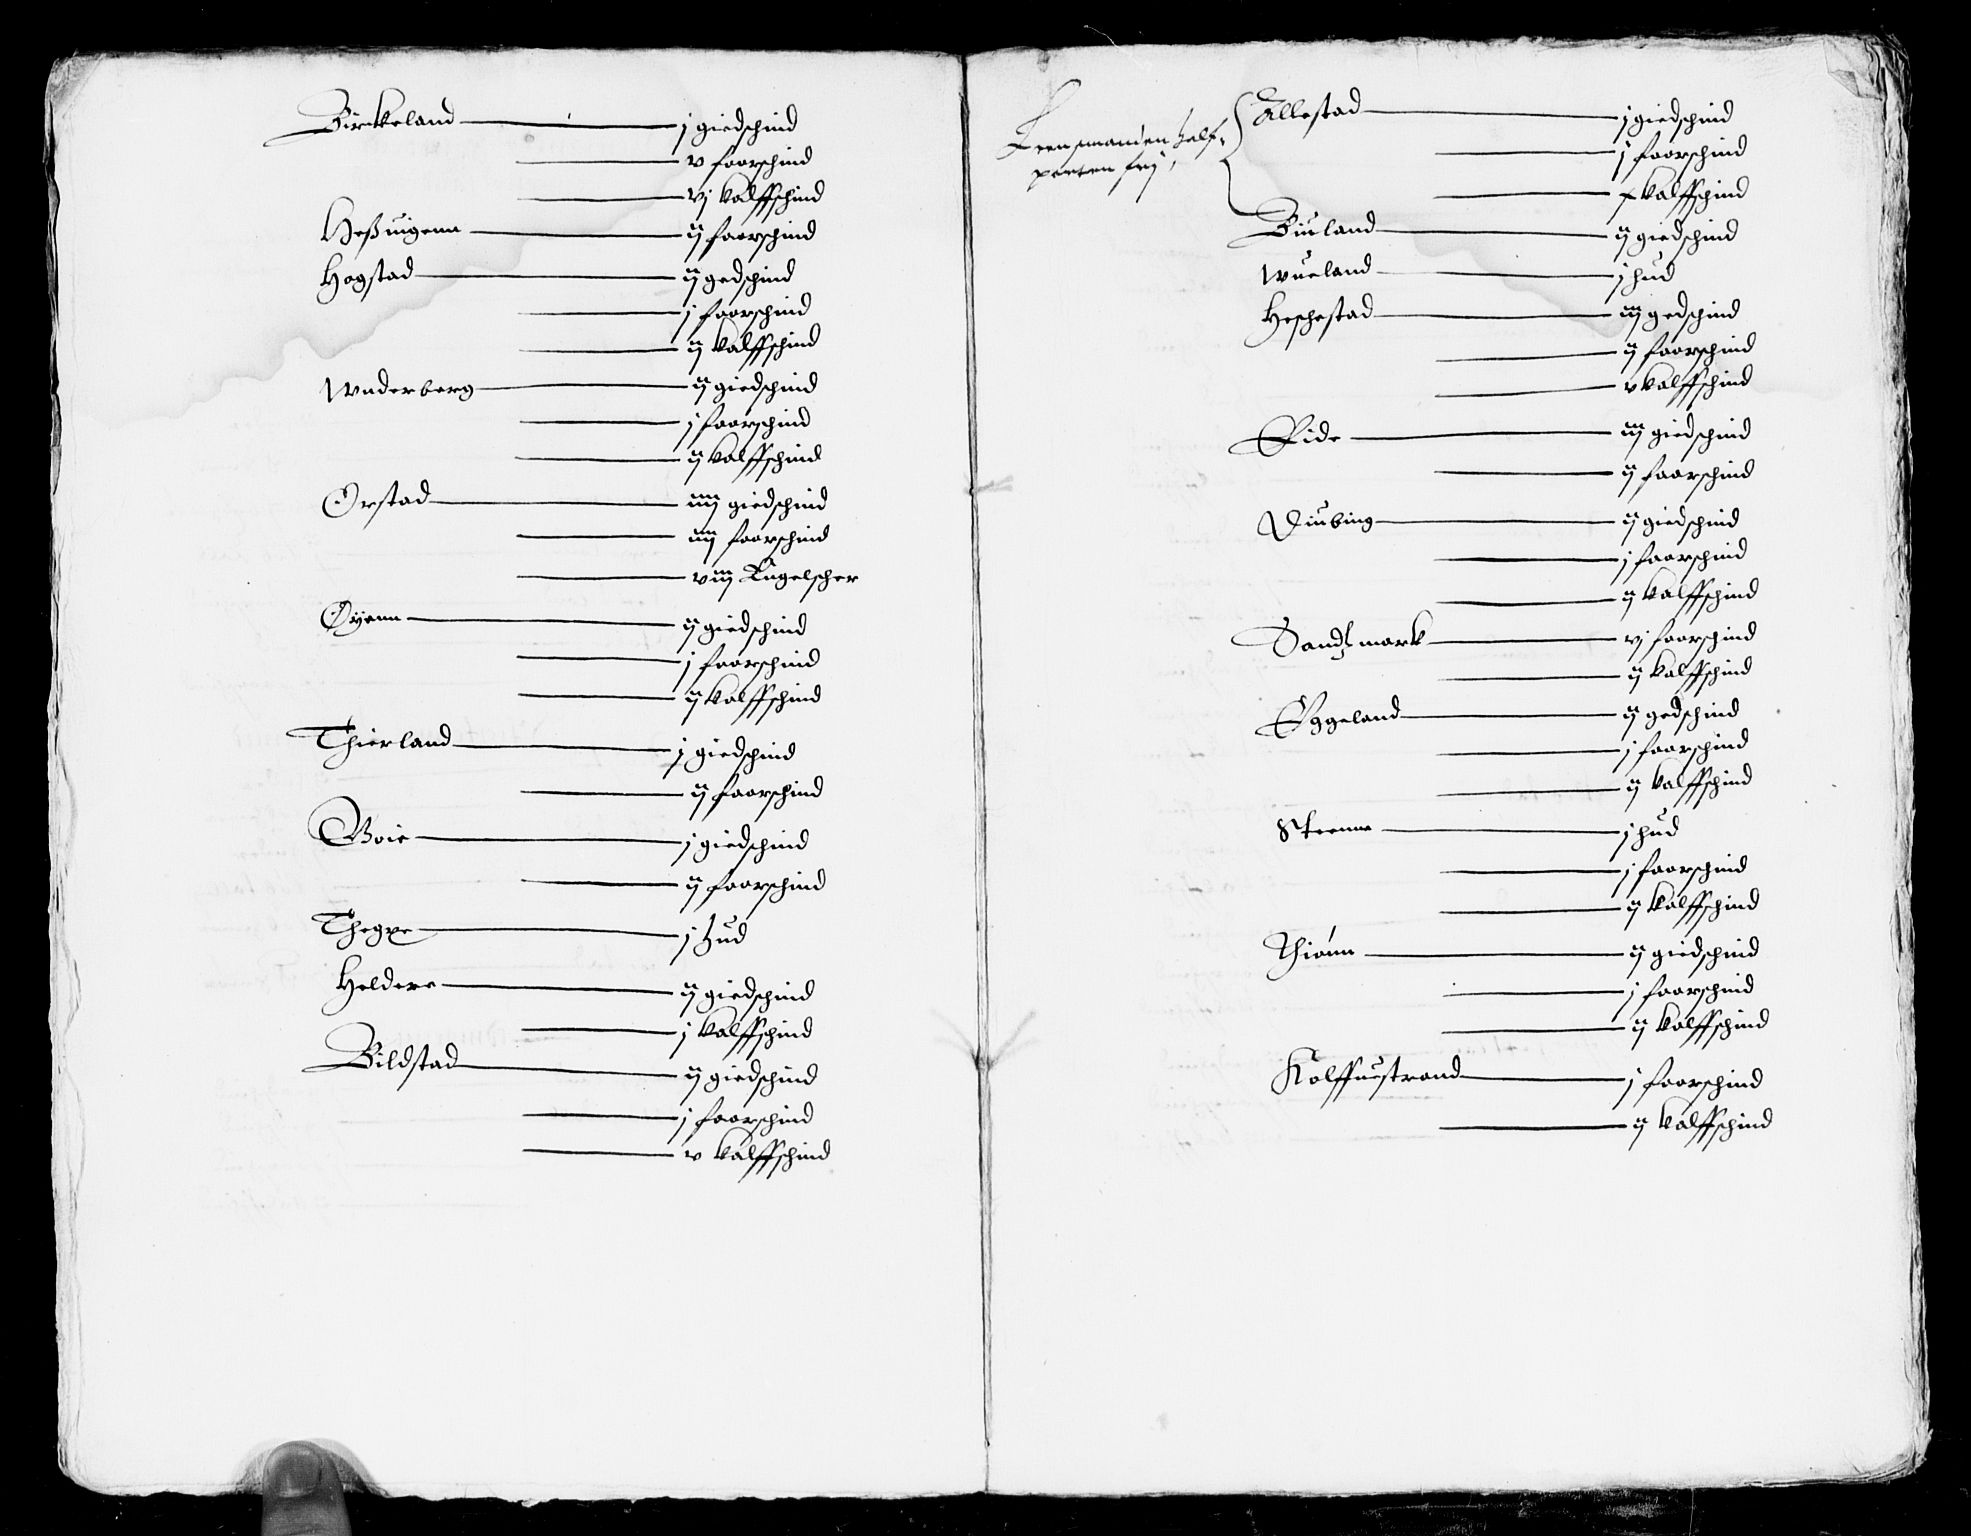 Birckeland — j giedschind
— v faarschind
— vj kalffschind
Heßuigenn — ij faarschind
Hogstad — ij gedschind
— j faarschind
— ij kalffschind
Wnderberg — ij giedschind
— j faarschind
— ij kalffschind
Orstad — iiij giedschind
— iiij faarschind
— viij Kugelscher
Øyenn — ij giedschind
— j faarschind
— ij kalffschind
Thierland — j giedschind
— ij faarschind
Boie — j giedschind
— ij faarschind
Thegxe — j hud
Heldere — ij giedschind
— j kalffschind
Bildstad — ij giedschind
— j faarschind
— v kalffschind
Leensmanden half
parten frij
Allestad — j giedschind
— j faarschind
— kalffschind
Biuland — ij giedschind
Wueland — j hud
Heschestad — iij gedschind
— ij faarschind
— v kalffschind
Eide — iij giedschind
— ij faarschind
Diubing — ij giedschind
— j faarschind
— ij kalffschind
Sandtzmark — vj faarschind
— ij kalffschind
Eggeland — ij gedschind
— j faarschind
— ij kalffschind
Steenne — j hud
— j faarschind
— ij kalffschind
Thiönn — ij giedschind
— j faarschind
— ij kalffschind
Kolffuestrand — j faarschind
— ij kalffschind